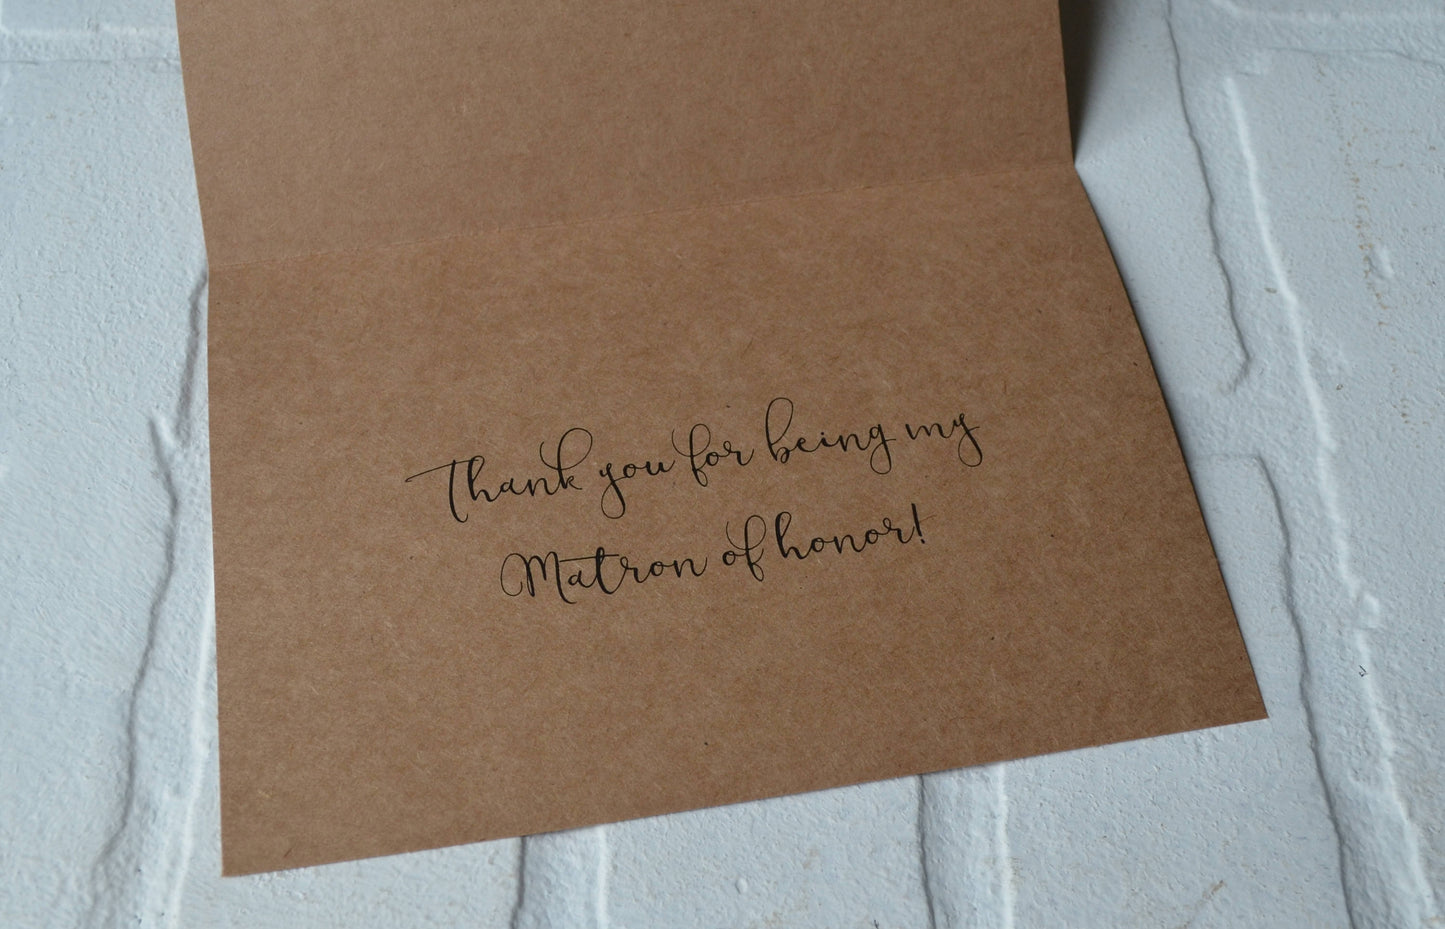 Thank you for being my
Matron of honor!